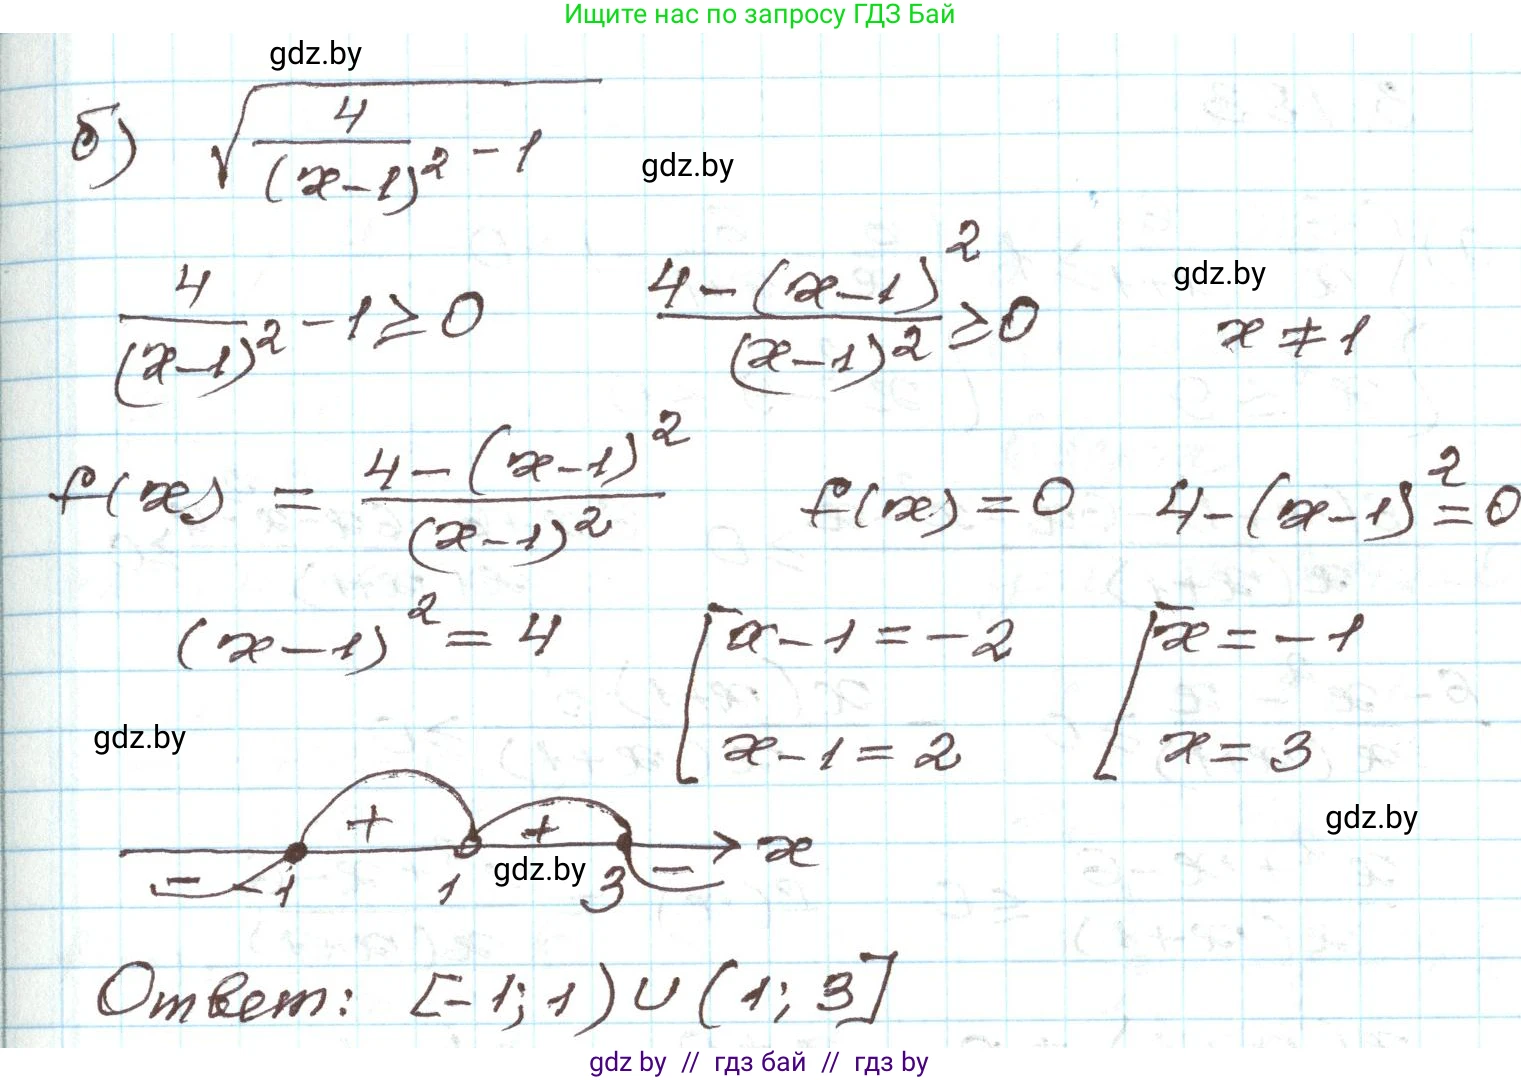 Ищите нас по запросу ГДЗ Бай
gdz.by
б) √(4/(x-1)² - 1)
gdz.by
4/(x-1)² - 1 ≥ 0    (4-(x-1)²)/(x-1)² ≥ 0    x ≠ 1
gdz.by
f(x) = (4-(x-1)²)/(x-1)²    f(x) = 0    4-(x-1)² = 0
(x-1)² = 4    [x-1 = -2    [x = -1
x-1 = 2    x = 3
gdz.by
gdz.by
+ + x
- -1 1 3 -
gdz.by
Ответ: [-1; 1) ∪ (1; 3]
gdz.by // гдз бай // gdz.by